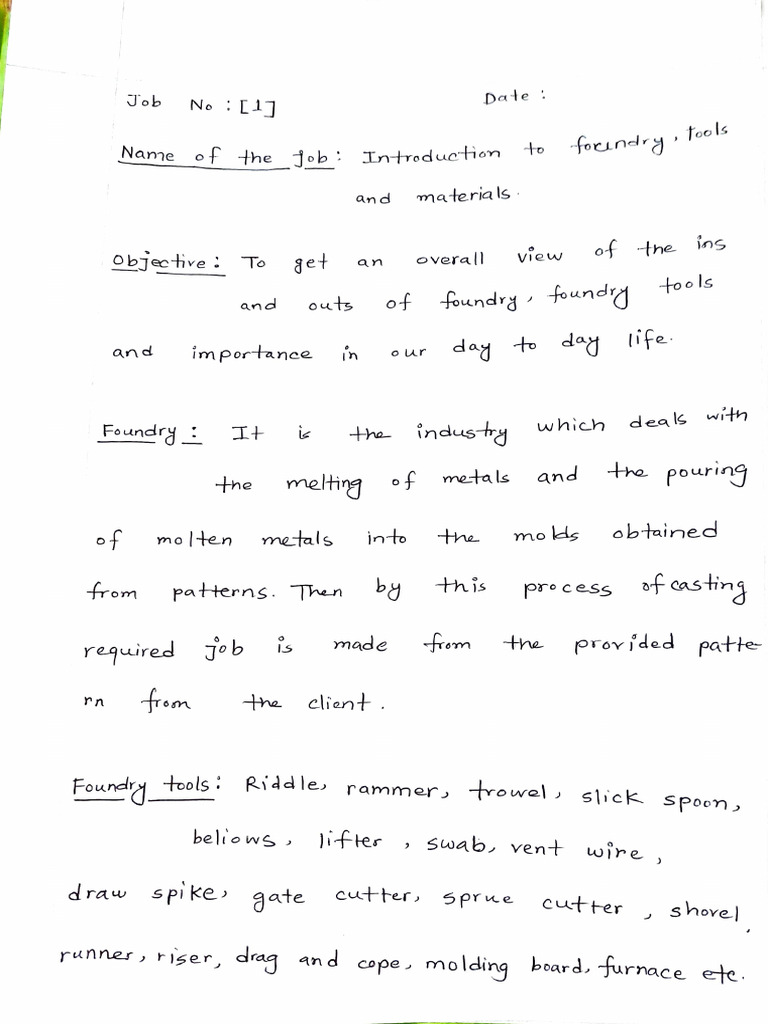 Job No : [1] Date :
Name of the job : Introduction to foundry, tools
and materials.
Objective : To get an overall view of the ins
and outs of foundry, foundry tools
and importance in our day to day life.
Foundry : It is the industry which deals with
the melting of metals and the pouring
of molten metals into the molds obtained
from patterns. Then by this process of casting
required job is made from the provided patte-
rn from the client.
Foundry tools : Riddle, rammer, trowel, slick spoon,
bellows, lifter, swab, vent wire,
draw spike, gate cutter, sprue cutter, shovel,
runner, riser, drag and cope, molding board, furnace etc.